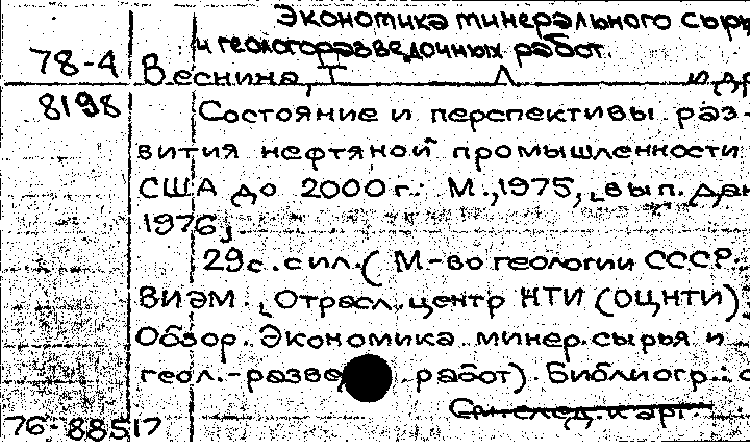 Экономика минерального сырь
и геологоразведочных работ.
78-4 Веснина, Т. Л. и др
8198 Состояние и перспективы раз-
вития нефтяной промышленности
США до 2000 г. М., 1975, [вып. дан
1976]
29 с. с ил. (М-во геологии СССР.
ВИЭМ. [Отрасл. центр НТИ (ОЦНТИ)].
Обзор. Экономика минер. сырья и
геол.-разве работ). Библиогр.: с
76-88517